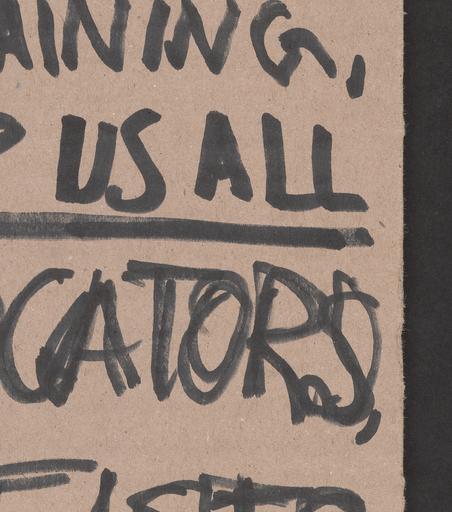 AINING,
US ALL
CATORS,